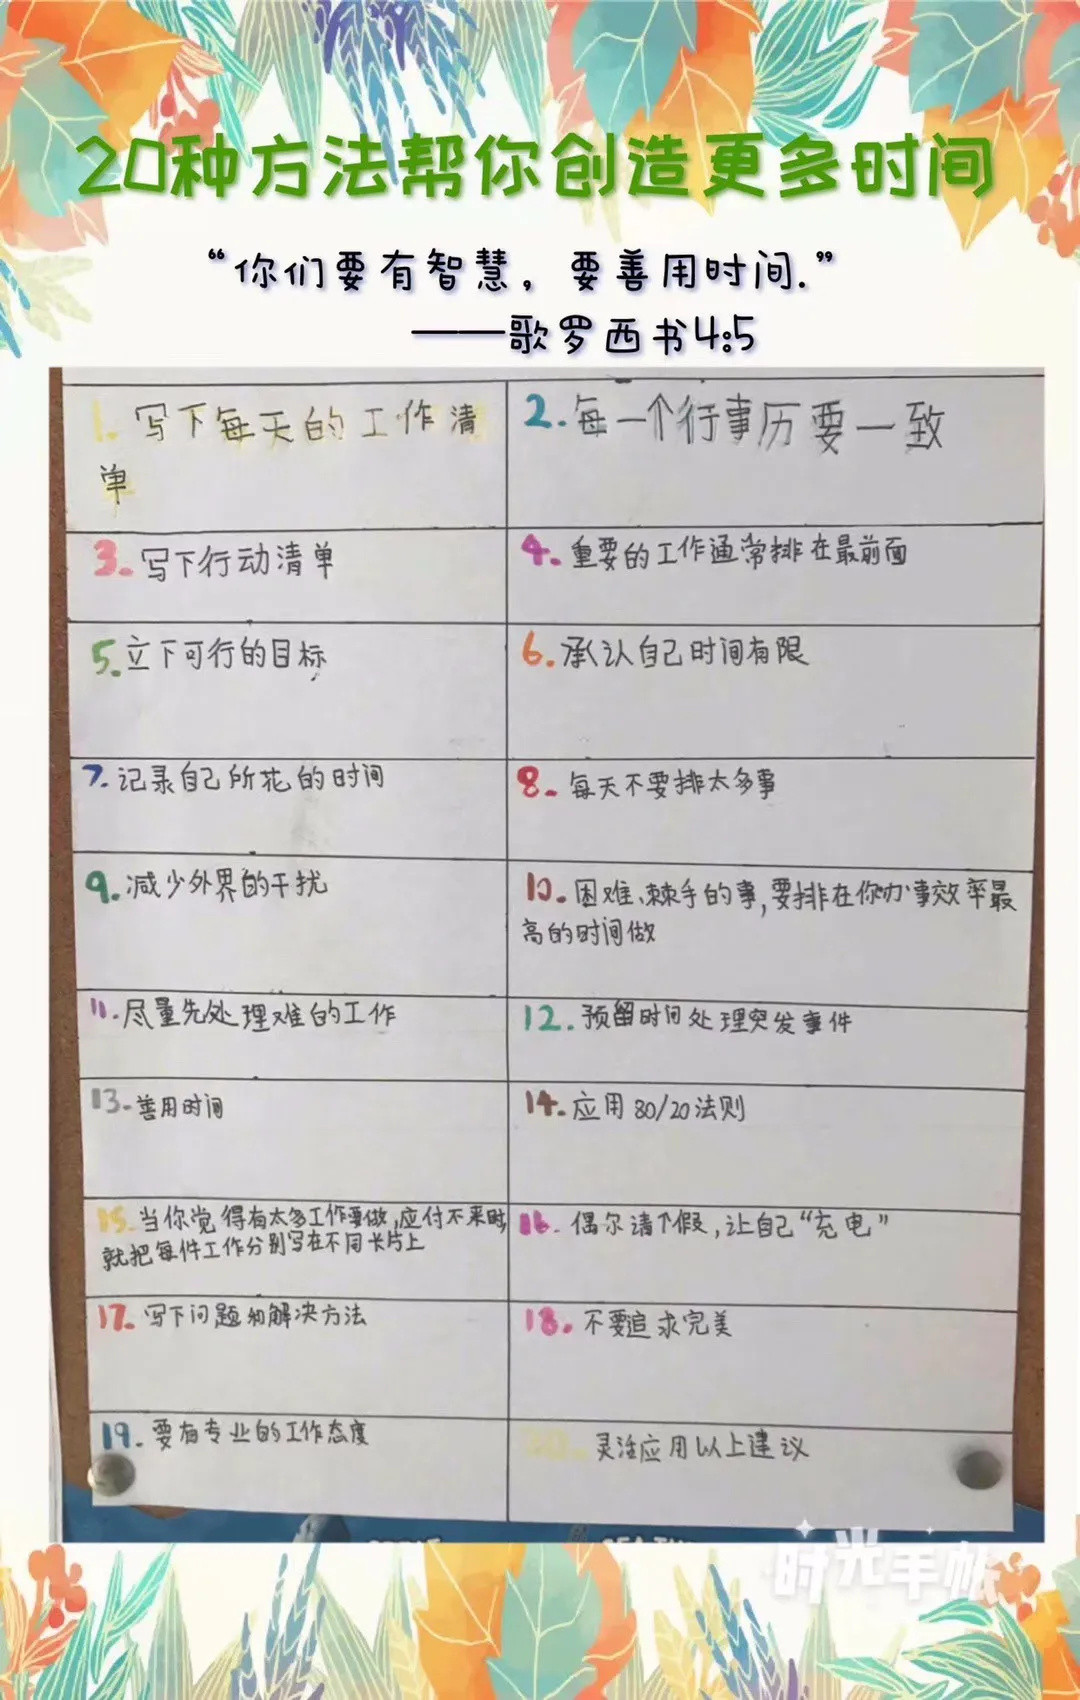 20种方法帮你创造更多时间
“你们要有智慧，要善用时间.”
——歌罗西书4:5
1. 写下每天的工作清
单
2. 每一个行事历要一致
3. 写下行动清单
4. 重要的工作通常排在最前面
5. 立下可行的目标
6. 承认自己时间有限
7. 记录自己所花的时间
8. 每天不要排太多事
9. 减少外界的干扰
10. 困难、棘手的事,要排在你办事效率最
高的时间做
11. 尽量先处理难的工作
12. 预留时间处理突发事件
13. 善用时间
14. 应用 80/20法则
15. 当你觉得有太多工作要做,应付不来时,
就把每件工作分别写在不同卡片上
16. 偶尔请个假,让自己“充电”
17. 写下问题和解决方法
18. 不要追求完美
19. 要有专业的工作态度
20. 灵活应用以上建议
时光手帐